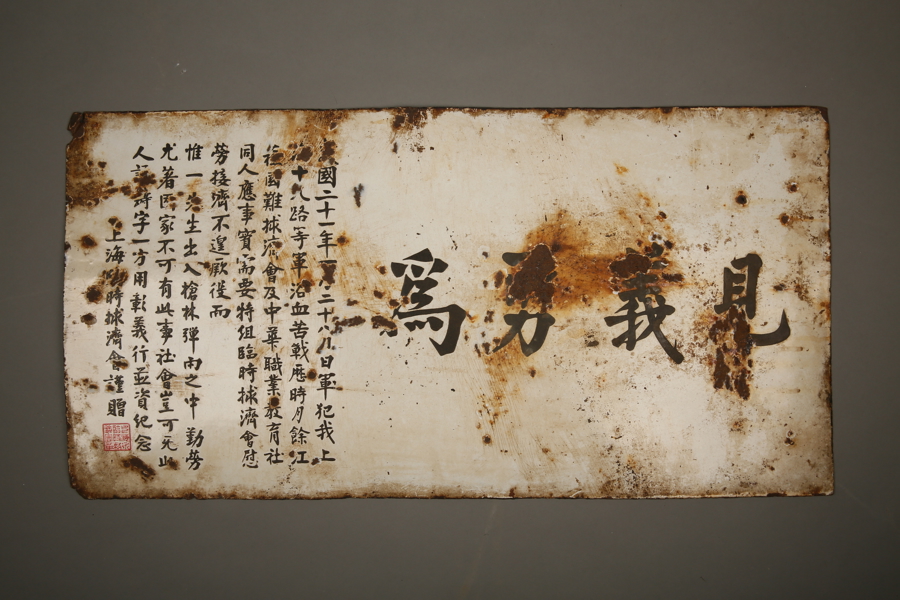 見義勇爲
國二十一年一月二十八日日軍犯我上
十九路等軍浴血苦戰歷時月餘江
國難捄濟會及中華職業敎育社
同人應事實需要特組臨時捄濟會慰
勞接濟不遑厥後而
惟一先生出入槍林彈雨之中勤勞
尤著國家不可有此事社會豈可无此
人 字一方用彰義行並資紀念
上海臨時捄濟會謹贈